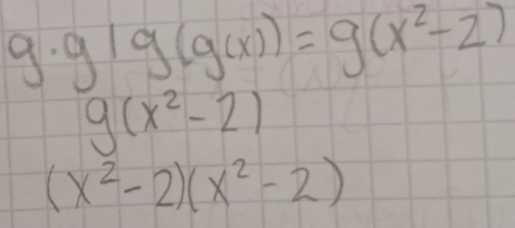 g·g | g(g(x)) = g(x²-2)
g(x²-2)
(x²-2)(x²-2)